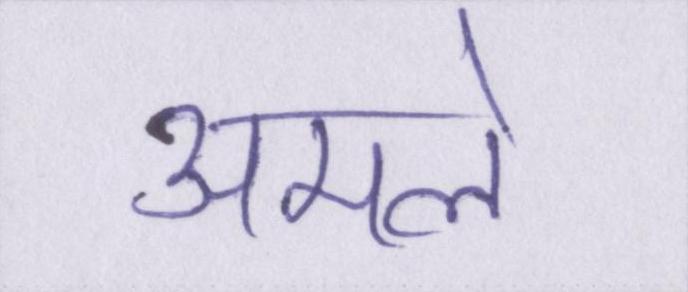 अमले